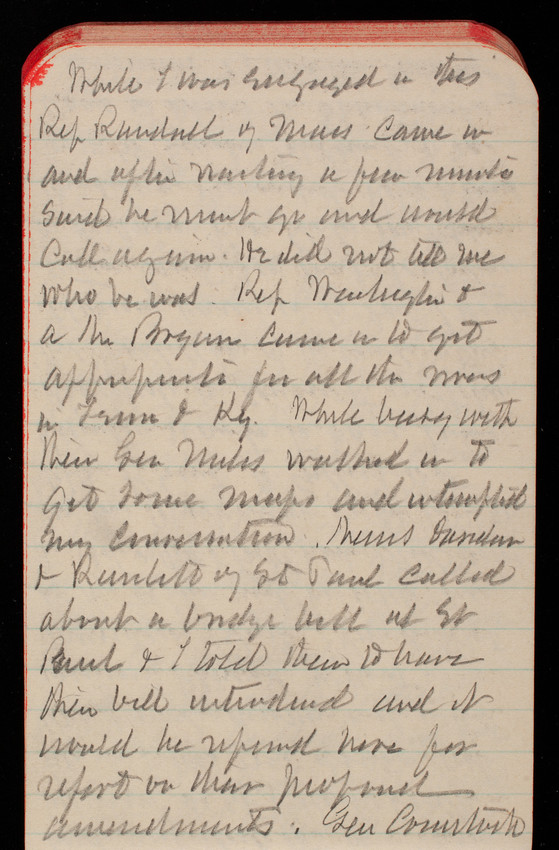 While I was engaged in this
Rep Randall of Mass came in
and after waiting a few minutes
said he must go and would
call again. He did not tell me
who he was. Rep Washington &
a Mr Bryan came in to get
appropriations for all the rivers
in Tenn & Ky. While busy with
them Gen Miles walked in to
get some maps and interrupted
my conversation. Messrs
& Rundlett of St Paul called
about a bridge bill at St
Paul & I told them to have
their bill introduced and it
would be referred here for
report on their proposed
amendments. Gen Comstock